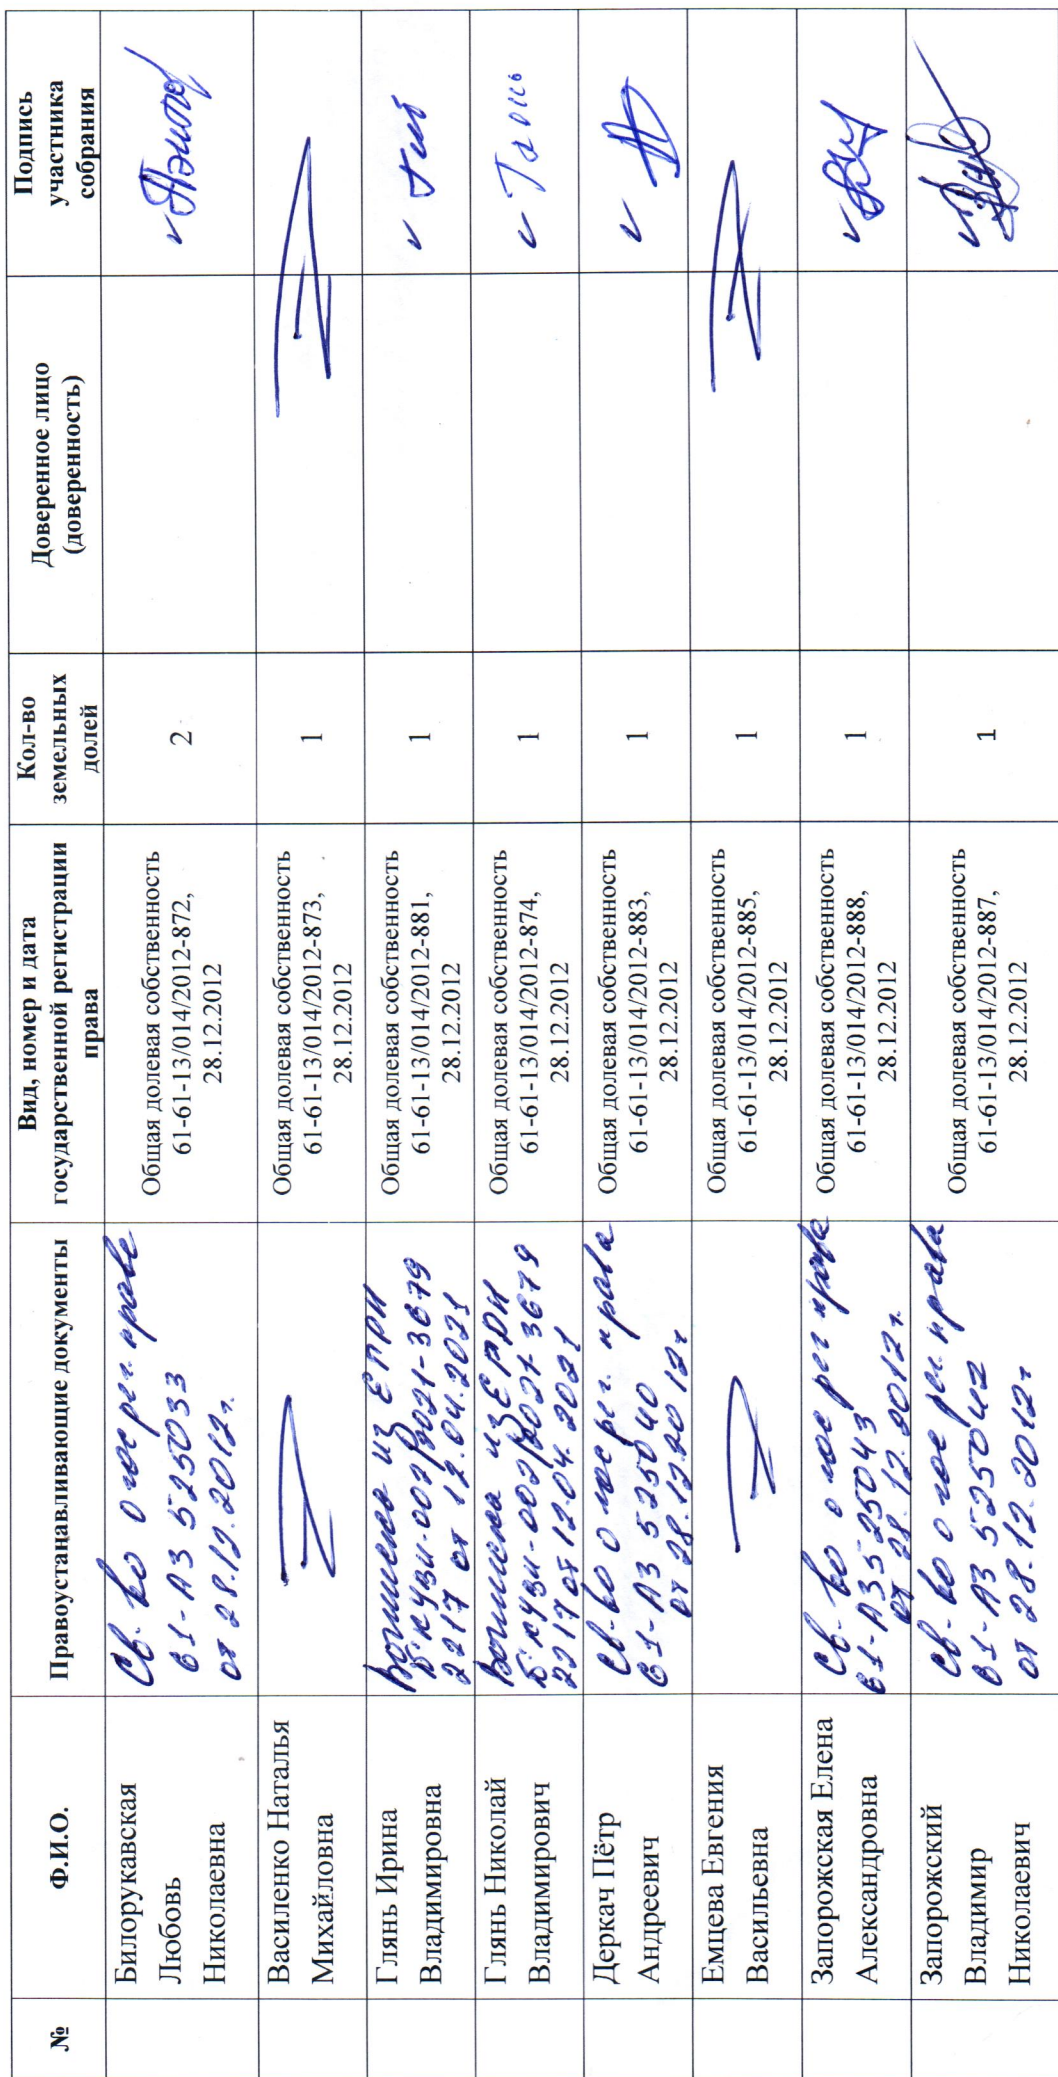 №
Ф.И.О.
Правоустанавливающие документы
Вид, номер и дата
государственной регистрации
права
Кол-во
земельных
долей
Доверенное лицо
(доверенность)
Подпись
участника
собрания
Билорукавская
Любовь
Николаевна
Св-во о гос рег. праве
61-АЗ 525033
от 28.12.2012г.
Общая долевая собственность
61-61-13/014/2012-872,
28.12.2012
2
Василенко Наталья
Михайловна
Общая долевая собственность
61-61-13/014/2012-873,
28.12.2012
1
Глянь Ирина
Владимировна
Выписка из ЕГРН
№ КУВИ-002/2021-3679
2217 от 12.04.2021
Общая долевая собственность
61-61-13/014/2012-881,
28.12.2012
1
Глянь Николай
Владимирович
Выписка из ЕГРН
№ КУВИ-002/2021-3679
2217 от 12.04.2021
Общая долевая собственность
61-61-13/014/2012-874,
28.12.2012
1
Деркач Пётр
Андреевич
Св-во о гос рег. права
61-АЗ 525040
от 28.12.2012г
Общая долевая собственность
61-61-13/014/2012-883,
28.12.2012
1
Емцева Евгения
Васильевна
Общая долевая собственность
61-61-13/014/2012-885,
28.12.2012
1
Запорожская Елена
Александровна
Св-во о гос рег права
61-АЗ 525043
от 28.12.2012г.
Общая долевая собственность
61-61-13/014/2012-888,
28.12.2012
1
Запорожский
Владимир
Николаевич
Св-во о гос рег. права
61-АЗ 525042
от 28.12.2012г
Общая долевая собственность
61-61-13/014/2012-887,
28.12.2012
1